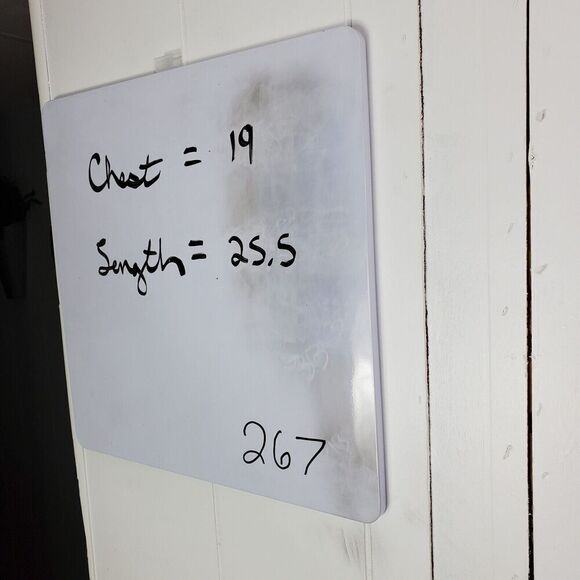 Chest = 19
Length = 25.5
267